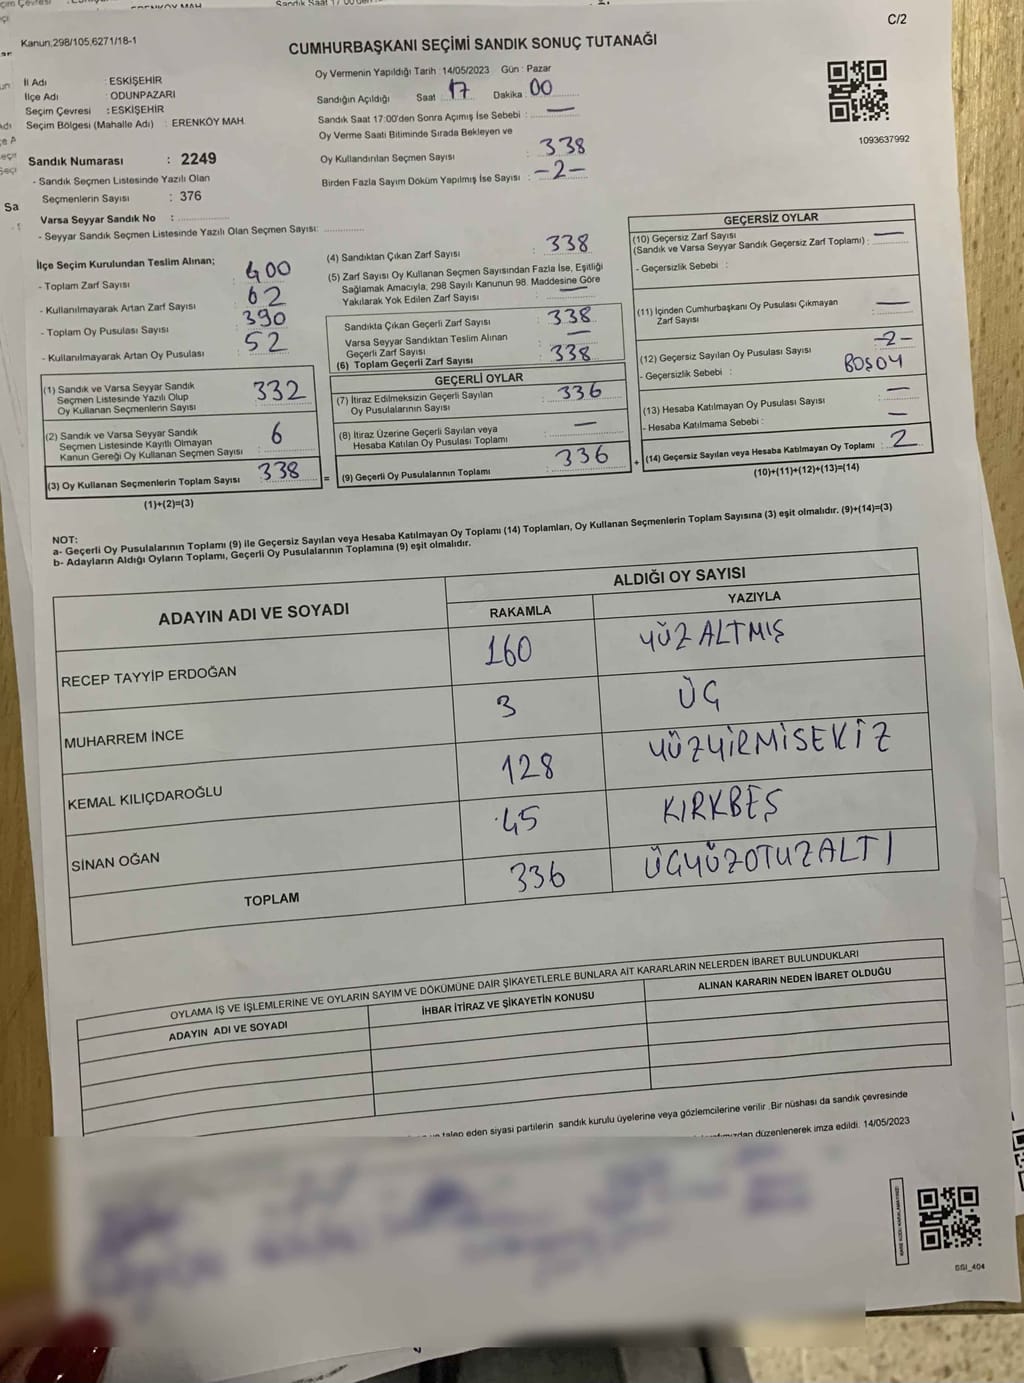 C/2
Kanun,298/105,6271/18-1
CUMHURBAŞKANI SEÇİMİ SANDIK SONUÇ TUTANAĞI
İl Adı : ESKİŞEHİR
İlçe Adı : ODUNPAZARI
Seçim Çevresi : ESKİŞEHİR
Seçim Bölgesi (Mahalle Adı) : ERENKÖY MAH.
Sandık Numarası : 2249
- Sandık Seçmen Listesinde Yazılı Olan
Seçmenlerin Sayısı : 376
Varsa Seyyar Sandık No :
- Seyyar Sandık Seçmen Listesinde Yazılı Olan Seçmen Sayısı:
Oy Vermenin Yapıldığı Tarih : 14/05/2023 Gün : Pazar
Sandığın Açıldığı Saat : 17 Dakika : 00
Sandık Saat 17:00'den Sonra Açımış İse Sebebi : —
Oy Verme Saati Bitiminde Sırada Bekleyen ve
Oy Kullandırılan Seçmen Sayısı : 338
Birden Fazla Sayım Döküm Yapılmış İse Sayısı : -2-
1093637992
İlçe Seçim Kurulundan Teslim Alınan;
- Toplam Zarf Sayısı : 400
- Kullanılmayarak Artan Zarf Sayısı : 62
- Toplam Oy Pusulası Sayısı : 390
- Kullanılmayarak Artan Oy Pusulası : 52
(1) Sandık ve Varsa Seyyar Sandık
Seçmen Listesinde Yazılı Olup
Oy Kullanan Seçmenlerin Sayısı : 332
(2) Sandık ve Varsa Seyyar Sandık
Seçmen Listesinde Kayıtlı Olmayan
Kanun Gereği Oy Kullanan Seçmen Sayısı : 6
(3) Oy Kullanan Seçmenlerin Toplam Sayısı : 338
(1)+(2)=(3)
(4) Sandıktan Çıkan Zarf Sayısı : 338
(5) Zarf Sayısı Oy Kullanan Seçmen Sayısından Fazla İse, Eşitliği
Sağlamak Amacıyla, 298 Sayılı Kanunun 98. Maddesine Göre
Yakılarak Yok Edilen Zarf Sayısı : —
Sandıkta Çıkan Geçerli Zarf Sayısı : 338
Varsa Seyyar Sandıktan Teslim Alınan
Geçerli Zarf Sayısı : —
(6) Toplam Geçerli Zarf Sayısı : 338
GEÇERLİ OYLAR
(7) İtiraz Edilmeksizin Geçerli Sayılan
Oy Pusulalarının Sayısı : 336
(8) İtiraz Üzerine Geçerli Sayılan veya
Hesaba Katılan Oy Pusulası Toplamı : —
= (9) Geçerli Oy Pusulalarının Toplamı : 336
GEÇERSİZ OYLAR
(10) Geçersiz Zarf Sayısı
(Sandık ve Varsa Seyyar Sandık Geçersiz Zarf Toplamı) : —
- Geçersizlik Sebebi :
(11) İçinden Cumhurbaşkanı Oy Pusulası Çıkmayan
Zarf Sayısı : —
(12) Geçersiz Sayılan Oy Pusulası Sayısı : -2-
- Geçersizlik Sebebi : BOŞ OY
(13) Hesaba Katılmayan Oy Pusulası Sayısı : —
- Hesaba Katılmama Sebebi : —
+ (14) Geçersiz Sayılan veya Hesaba Katılmayan Oy Toplamı : 2
(10)+(11)+(12)+(13)=(14)
NOT:
a- Geçerli Oy Pusulalarının Toplamı (9) ile Geçersiz Sayılan veya Hesaba Katılmayan Oy Toplamı (14) Toplamları, Oy Kullanan Seçmenlerin Toplam Sayısına (3) eşit olmalıdır. (9)+(14)=(3)
b- Adayların Aldığı Oyların Toplamı, Geçerli Oy Pusulalarının Toplamına (9) eşit olmalıdır.
ADAYIN ADI VE SOYADI
ALDIĞI OY SAYISI
RAKAMLA YAZIYLA
RECEP TAYYİP ERDOĞAN 160 YÜZ ALTMIŞ
MUHARREM İNCE 3 ÜÇ
KEMAL KILIÇDAROĞLU 128 YÜZYİRMİSEKİZ
SİNAN OĞAN 45 KIRKBEŞ
TOPLAM 336 ÜÇYÜZOTUZALTI
OYLAMA İŞ VE İŞLEMLERİNE VE OYLARIN SAYIM VE DÖKÜMÜNE DAİR ŞİKAYETLERLE BUNLARA AİT KARARLARIN NELERDEN İBARET BULUNDUKLARI
ADAYIN ADI VE SOYADI İHBAR İTİRAZ VE ŞİKAYETİN KONUSU ALINAN KARARIN NEDEN İBARET OLDUĞU
talep eden siyasi partilerin sandık kurulu üyelerine veya gözlemcilerine verilir. Bir nüshası da sandık çevresinde
düzenlenerek imza edildi. 14/05/2023